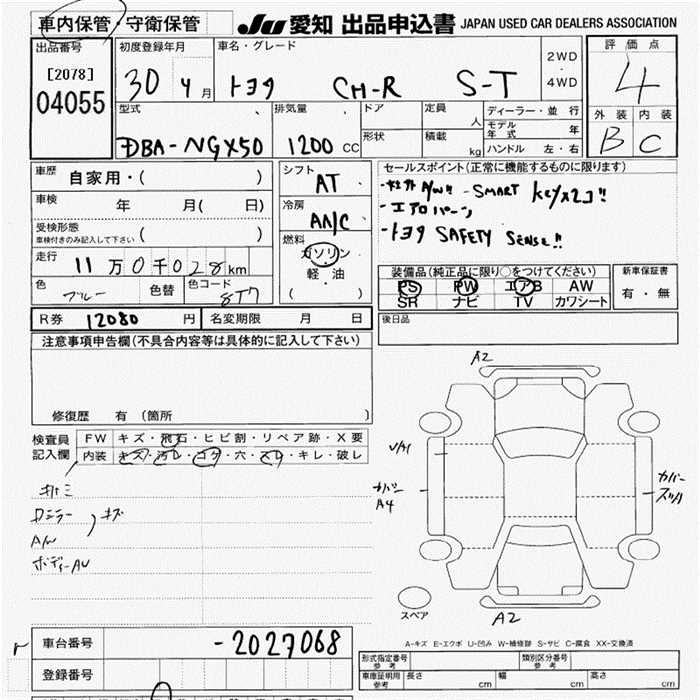 車内保管・守衛保管 JU 愛知 出品申込書 JAPAN USED CAR DEALERS ASSOCIATION
出品番号 初度登録年月 車名・グレード 2WD・4WD 評価点
[2078] 30 4月 トヨタ CH-R S-T 4
04055
型式 排気量 ドア 定員 人 ディーラー・並行 外装 内装
DBA-NGX50 1200 CC 形状 積載 kg モデル年式 年 B C
ハンドル 左・右
車歴 自家用・( ) シフト AT セールスポイント(正常に機能するものに限ります)
車検 年 月( 日) 冷房 AA/C ・社外 ・SMART keyx2コ!!
受検形態 車検付きのみ記入して下さい ( ) 燃料 ・エアロパーツ
走行 11万0千028km ガソリン ・トヨタ SAFETY SENSE!!
色 ブルー 色替 色コード 8T7 軽・油 ( )
装備品(純正品に限り○をつけてください) 新車保証書
PS PW エアB AW 有・無
SR ナビ TV カワシート
R券 12080 円 名変期限 月 日 後日品
注意事項申告欄(不具合内容等は具体的に記入して下さい)
修復歴 有(箇所 )
検査員記入欄 FW キズ・飛石・ヒビ割・リペア跡・X要
内装 キズ・汚レ・コゲ・穴・スレ・キレ・破レ
A2
カバー A4
カバー
キズ
スペア A2
A-キズ E-エクボ U-凹み W-補修跡 S-サビ C-腐食 XX-交換済
車台番号 -2027068
登録番号
形式指定番号 参考 類別区分番号 参考
車庫証明用 参考 長さ cm 幅 cm 高さ cm